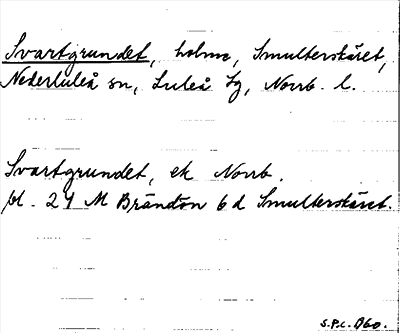 Svartgrundet, holme, Smulterskäret,
Nederluleå sn, Luleå tg, Norrb. l.
Svartgrundet, ek Norrb.
bl. 24 M Brändön 6 d Smulterskäret.
S.P.L. 1960.